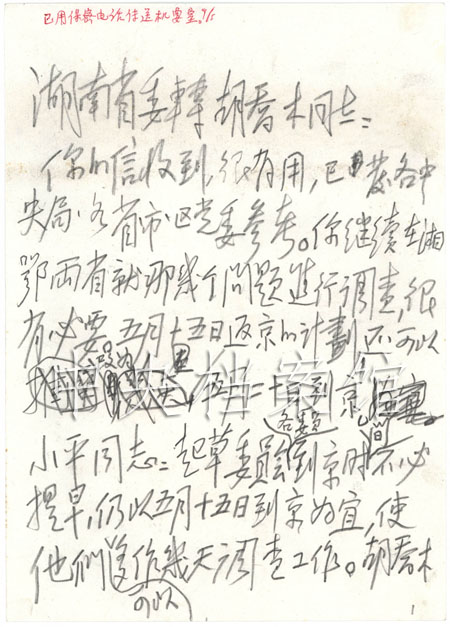 已用保密电话传送机要室。9/5
湖南省委轉胡喬木同志：
你的信收到，很有用，已發各中
央局、各省市区党委參考。你继续在湘
鄂两省就那幾个问题進行调查，很
有必要。五月十五日返京的计劃还可以
到京
各委員
日
小平同志：起草委員会到京时不必
提早，仍以五月十五日到京为宜，使
他们作幾天调查工作。胡喬木
可以
1
中央档案馆